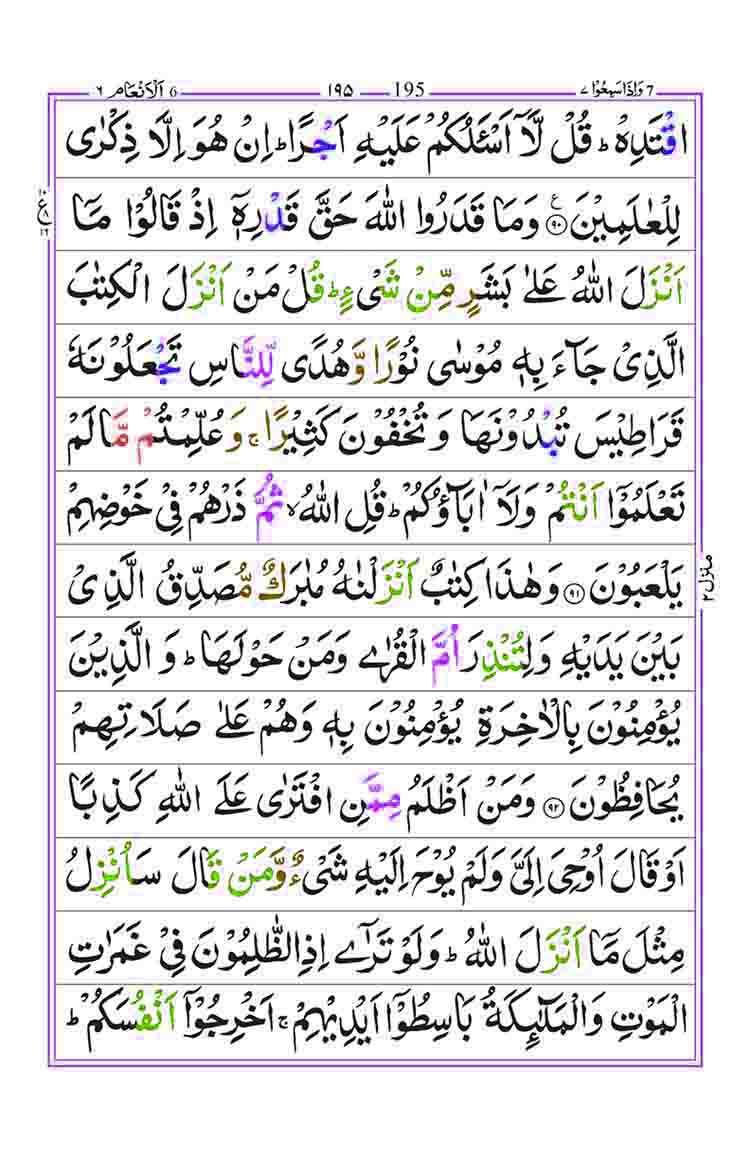 ٦ اَلْاَنْعَام 6 ١٩٥ 195 وَاِذَا سَمِعُوْا ٧ 7
اقْتَدِهْ ؕ قُلْ لَّاۤ اَسْـَٔلُكُمْ عَلَيْهِ اَجْرًا ؕ اِنْ هُوَ اِلَّا ذِكْرٰى
لِلْعٰلَمِيْنَ ۟﴿٩٠﴾ وَمَا قَدَرُوا اللّٰهَ حَقَّ قَدْرِهٖۤ اِذْ قَالُوْا مَاۤ
اَنْزَلَ اللّٰهُ عَلٰى بَشَرٍ مِّنْ شَیْءٍ ؕ قُلْ مَنْ اَنْزَلَ الْكِتٰبَ
الَّذِیْ جَآءَ بِهٖ مُوْسٰى نُوْرًا وَّهُدًى لِّلنَّاسِ تَجْعَلُوْنَهٗ
قَرَاطِيْسَ تُبْدُوْنَهَا وَتُخْفُوْنَ كَثِيْرًا ۚ وَعُلِّمْتُمْ مَّا لَمْ
تَعْلَمُوْۤا اَنْتُمْ وَلَاۤ اٰبَآؤُكُمْ ؕ قُلِ اللّٰهُ ۙ ثُمَّ ذَرْهُمْ فِیْ خَوْضِهِمْ
يَلْعَبُوْنَ ﴿٩١﴾ وَهٰذَا كِتٰبٌ اَنْزَلْنٰهُ مُبٰرَكٌ مُّصَدِّقُ الَّذِیْ
بَيْنَ يَدَيْهِ وَلِتُنْذِرَ اُمَّ الْقُرٰى وَمَنْ حَوْلَهَا ؕ وَالَّذِيْنَ
يُؤْمِنُوْنَ بِالْاٰخِرَةِ يُؤْمِنُوْنَ بِهٖ وَهُمْ عَلٰى صَلَاتِهِمْ
يُحَافِظُوْنَ ﴿٩٢﴾ وَمَنْ اَظْلَمُ مِمَّنِ افْتَرٰى عَلَى اللّٰهِ كَذِبًا
اَوْ قَالَ اُوْحِیَ اِلَیَّ وَلَمْ يُوْحَ اِلَيْهِ شَیْءٌ وَّمَنْ قَالَ سَاُنْزِلُ
مِثْلَ مَاۤ اَنْزَلَ اللّٰهُ ؕ وَلَوْ تَرٰۤى اِذِ الظّٰلِمُوْنَ فِیْ غَمَرٰتِ
الْمَوْتِ وَالْمَلٰٓئِكَةُ بَاسِطُوْۤا اَيْدِيْهِمْ ۚ اَخْرِجُوْۤا اَنْفُسَكُمْ ؕ
منزل ٢